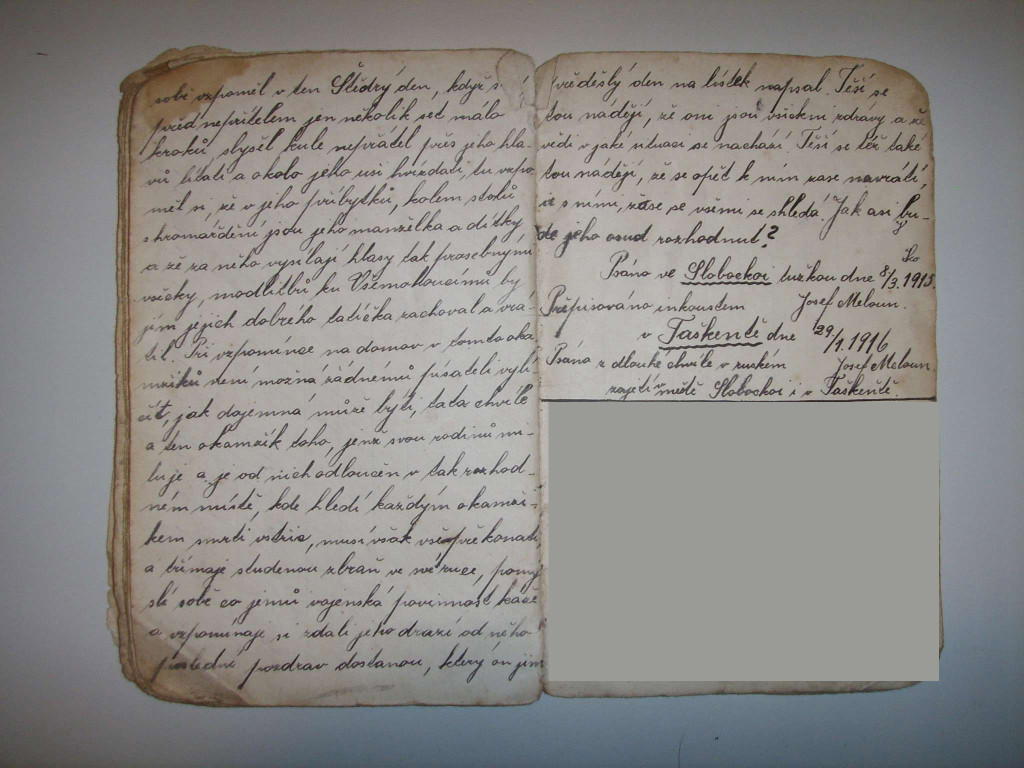 sobě vzpoměl v ten Štědrý den, když s
před nepřítelem jen nekolik set málo
kroků, slyšel kule nepřátel přes jeho hla-
vů lítati a okolo jeho usi hvízdati, tu vzpo
měl si, že v jeho příbytků, kolem stolů
shromaždění jsou jeho manželka a dítky
a že za něho vysílají hlasy tak prosebnými
vzdky, modlitbů ku Všemohoucímu by
jim jejich dobrého tatíčka zachoval a vrá-
til. Při vzpomínce na domov v tomto oka
mžiků není možná žádnému pisateli vylí
čit, jak dojemná může býti, tata chvíle
a ten okamžik toho, jenž svou rodinů mi-
luje a je od nich odloučen v tak rozhod-
ném místě, kde hledí každým okamži-
kem smrti vstříc, musí však vše překonati,
a třímaje studenou zbraň ve své ruce, pomy
slí sobě co jemů vojenská povinnost káže
a vzpomínaje si zdali jeho drazí od něho
poslední pozdrav dostanou, který on jim
předešlý den na lístek napsal. Těší se
tou nadějí, že oni jsou všickni zdrávy a že
vědí v jaké situaci se nachází. Těší se též také
tou nadějí, že se opět k ním zase navrátí,
a s ními, zase se všemi se shledá. Jak asi bu-
de jeho osud rozhodnut?
Psáno ve Slobockoi tužkou dne 8/3. 1915.
Přepisováno inkoustem Josef Meloun.
v Taškentě dne 29/1. 1916
Psáno z dlouhé chvíle v ruském Josef Meloun
zajetí v městě Slobockoi i v Taškentě.